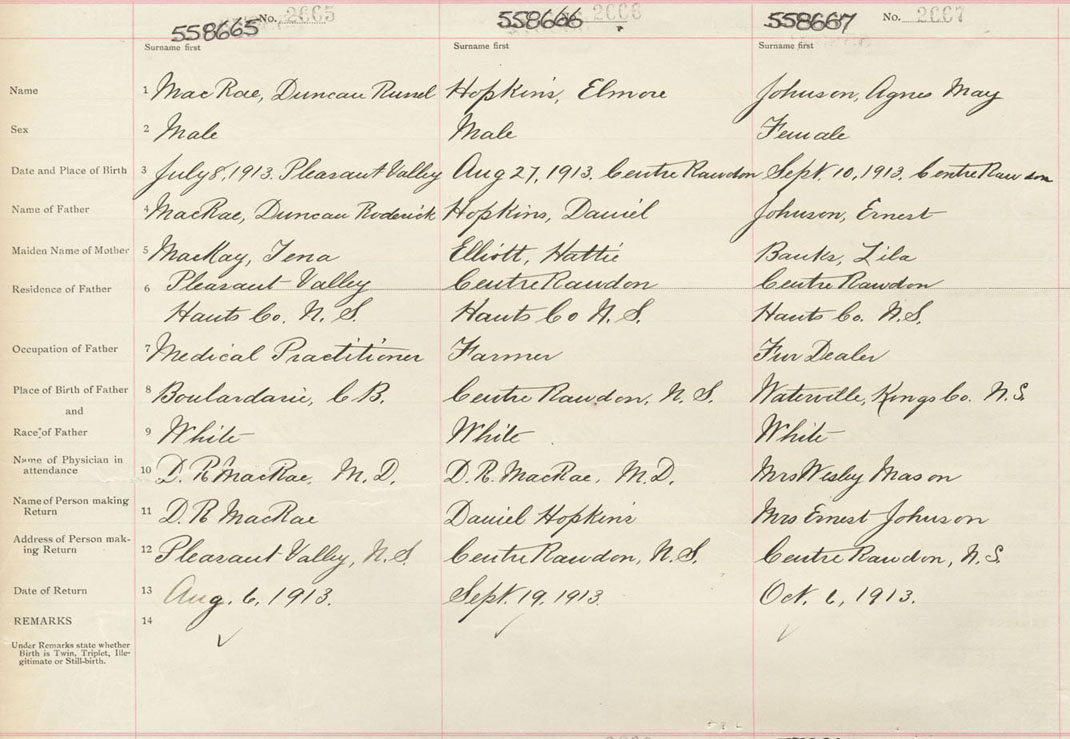 558665 No. 2665 558666 2666 558667 No. 2667
Surname first Surname first Surname first
Name 1 MacRae, Duncan Rusel Hopkins, Elmore Johnson, Agnes May
Sex 2 Male Male Female
Date and Place of Birth 3 July 8, 1913. Pleasant Valley Aug 27, 1913. Centre Rawdon Sept. 10, 1913. Centre Rawdon
Name of Father 4 MacRae, Duncan Roderick Hopkins, Daniel Johnson, Ernest
Maiden Name of Mother 5 MacKay, Tena Elliott, Hattie Banks, Lila
Residence of Father 6 Pleasant Valley Centre Rawdon Centre Rawdon
Hants Co. N. S. Hants Co N. S. Hants Co. N. S.
Occupation of Father 7 Medical Practitioner Farmer Fur Dealer
Place of Birth of Father 8 Boulardarie, C B. Centre Rawdon, N. S. Waterville, Kings Co. N. S
and
Race of Father 9 White White White
Name of Physician in
attendance 10 D. R. MacRae, M. D. D. R. MacRae, M. D. Mrs Wesley Mason
Name of Person making
Return 11 D. R MacRae Daniel Hopkins Mrs Ernest Johnson
Address of Person mak-
ing Return 12 Pleasant Valley, N. S. Centre Rawdon, N. S. Centre Rawdon, N. S.
Date of Return 13 Aug. 6, 1913. Sept. 19, 1913. Oct. 6, 1913.
REMARKS 14
Under Remarks state whether
Birth is Twin, Triplet, Ille-
gitimate or Still-birth.